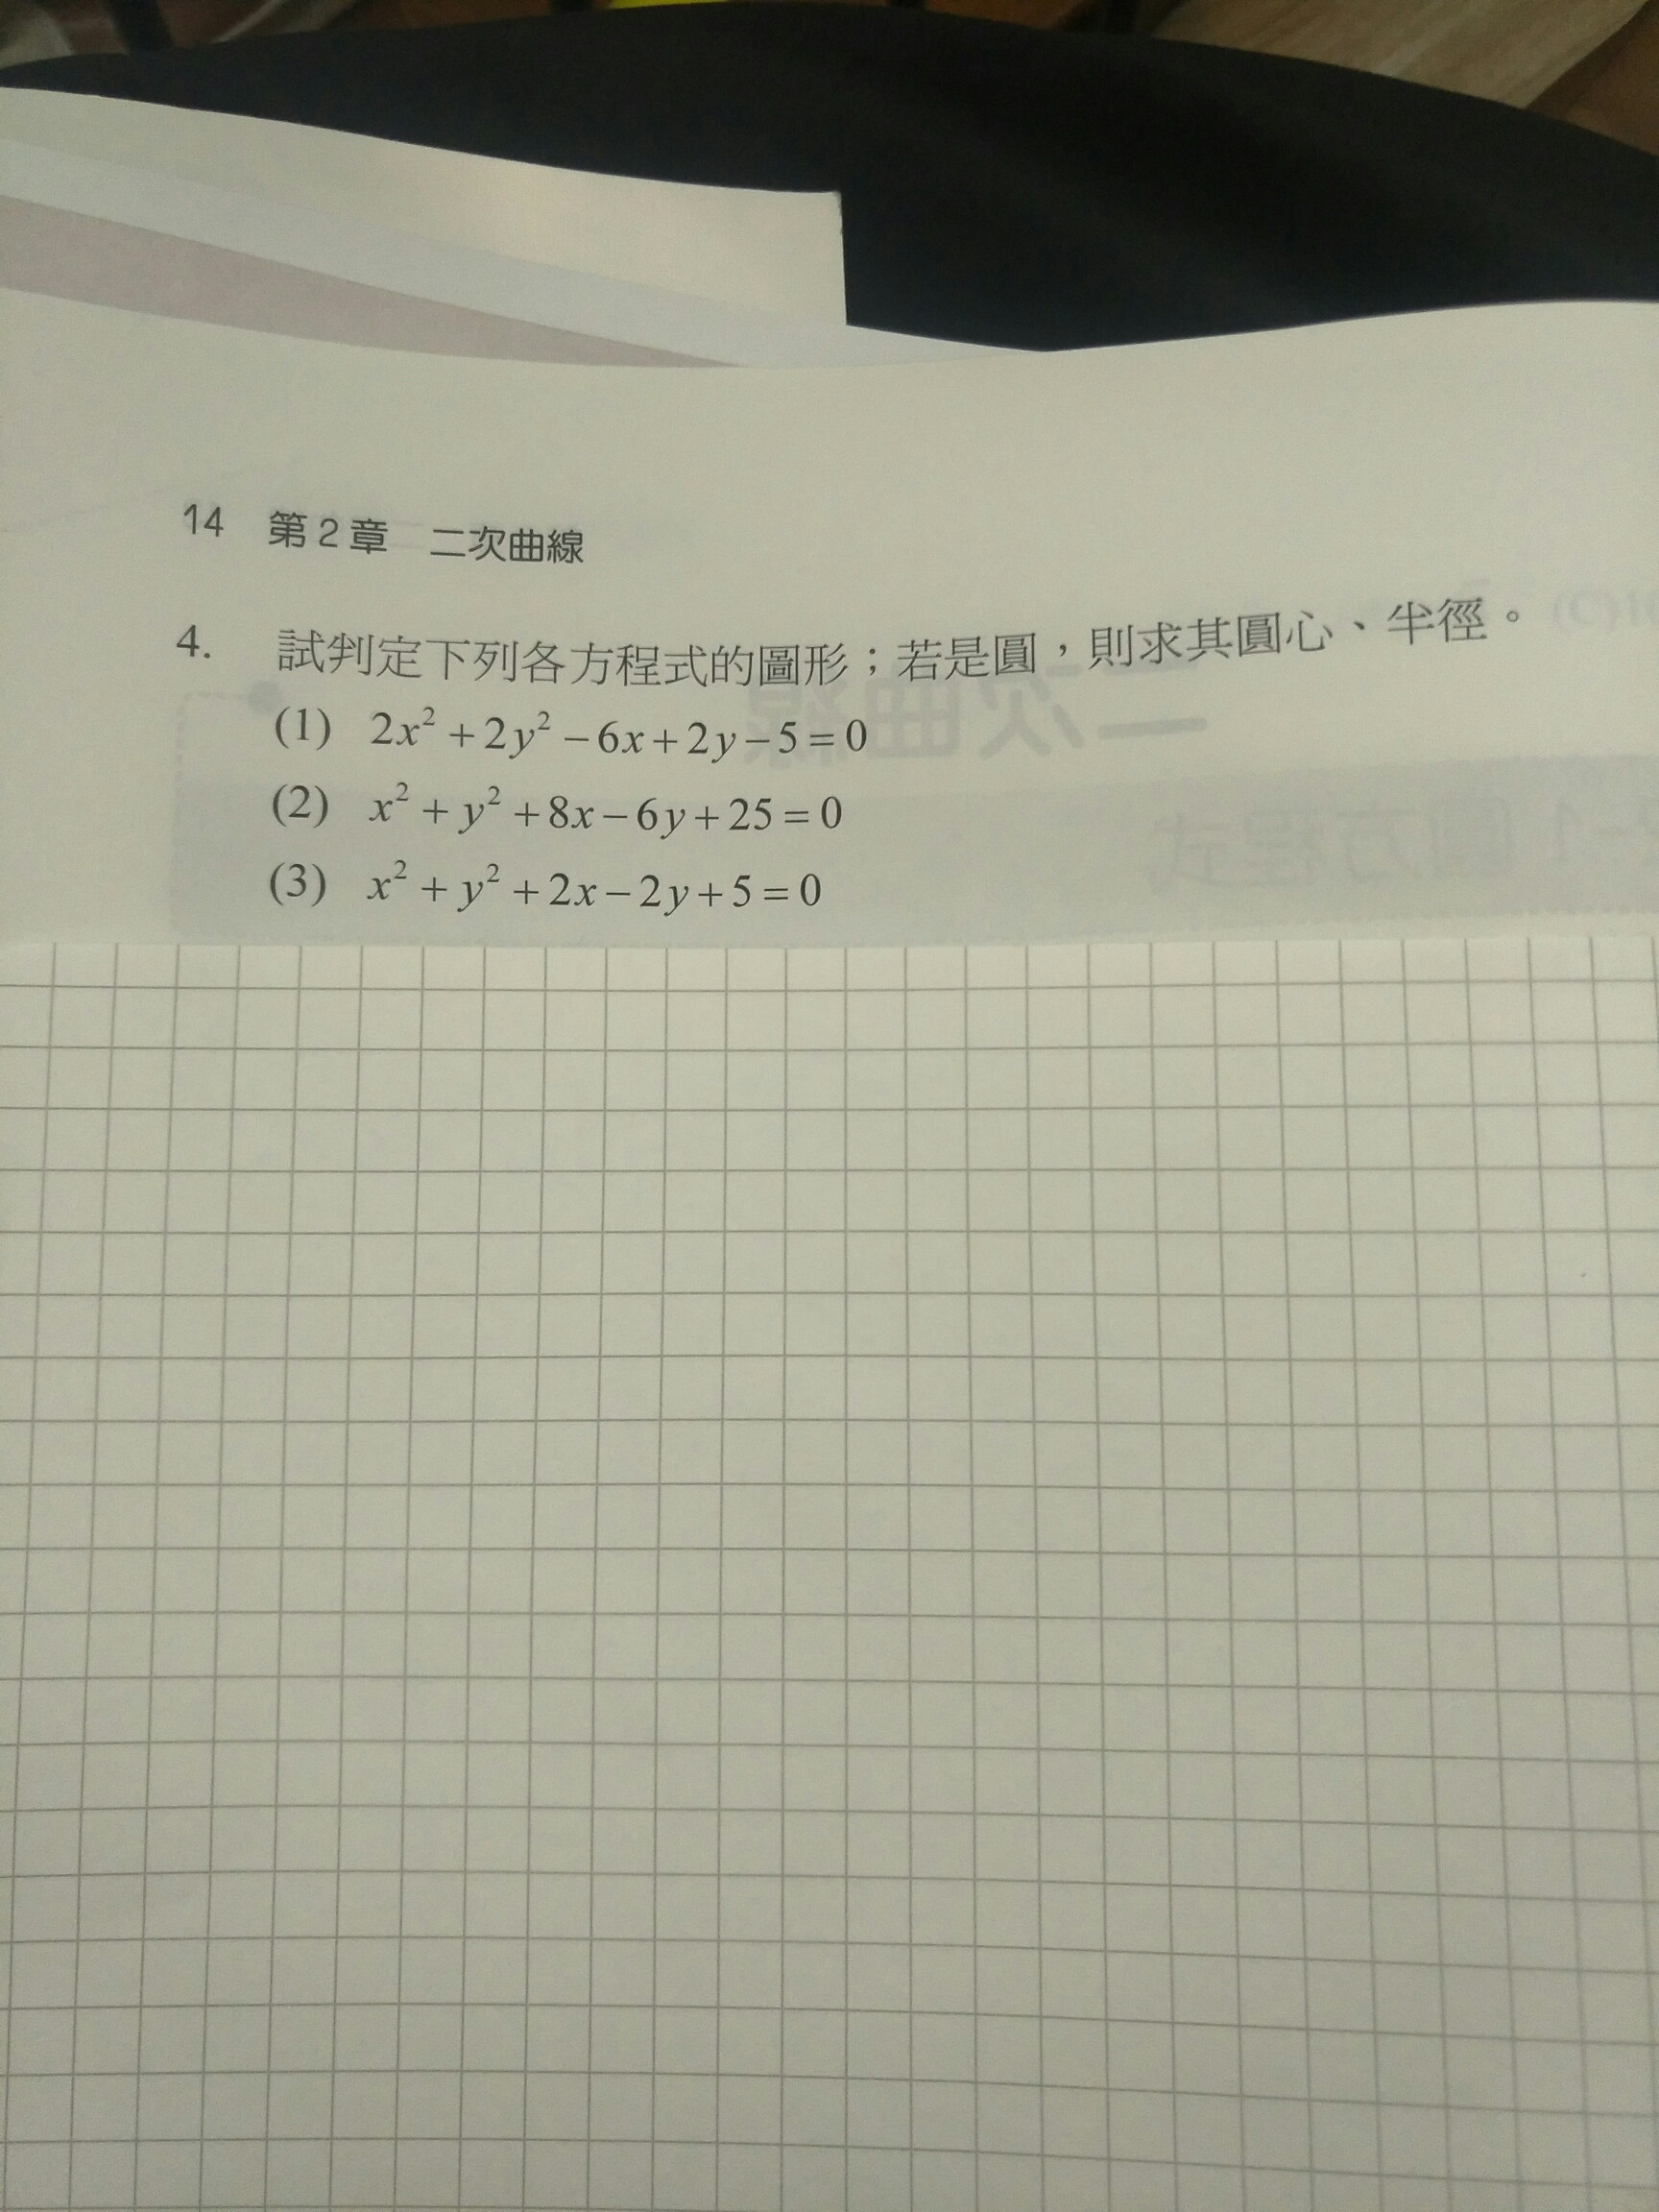 14 第2章 二次曲線
4. 試判定下列各方程式的圖形；若是圓，則求其圓心、半徑。
(1) 2x² + 2y² − 6x + 2y − 5 = 0
(2) x² + y² + 8x − 6y + 25 = 0
(3) x² + y² + 2x − 2y + 5 = 0